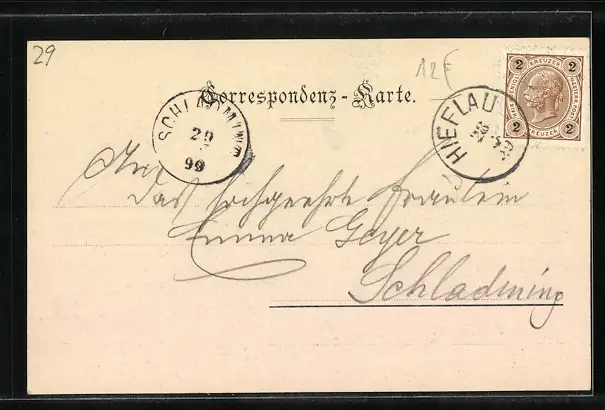 29
12 F
Correspondenz-Karte.
2 KREUZER 2
2 KREUZER 2
SCHLADMING
29
99
HIEFLAU
An
das hochgeehrte Fräulein
Emma Geyer
Schladming